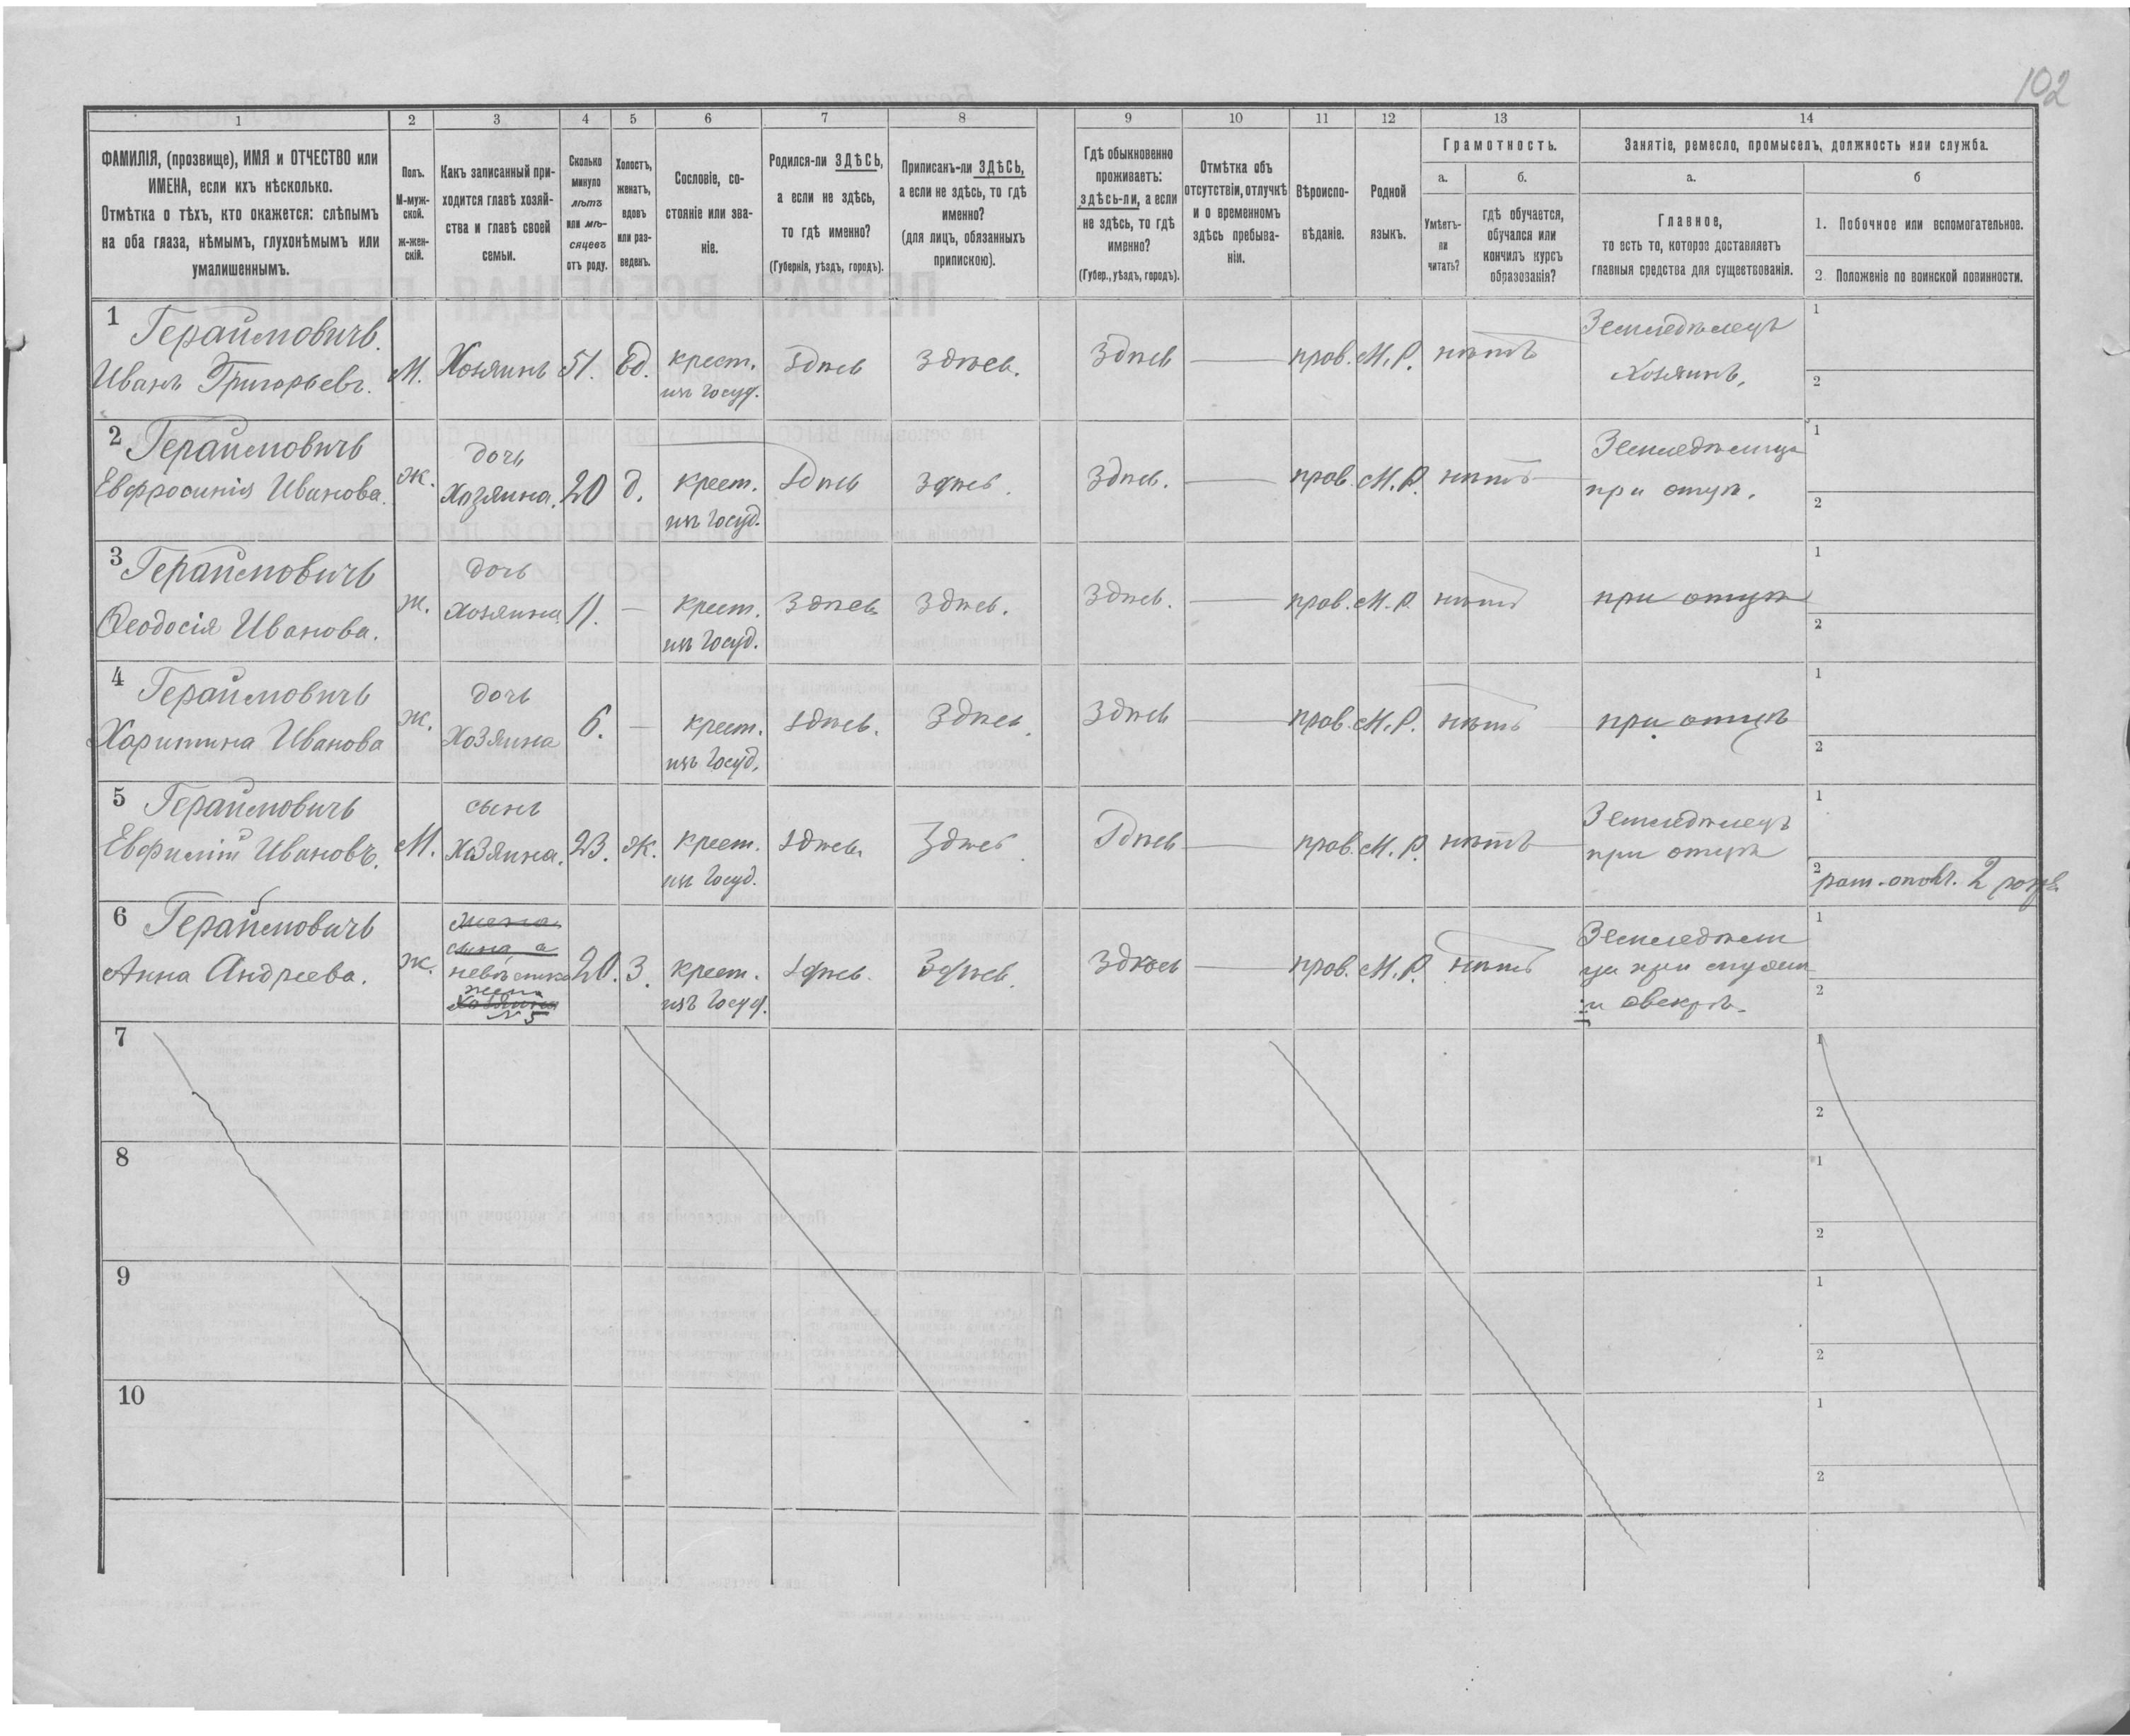 102
1 2 3 4 5 6 7 8 9 10 11 12 13 14
ФАМИЛІЯ, (прозвище), ИМЯ и ОТЧЕСТВО или
ИМЕНА, если ихъ нѣсколько.
Отмѣтка о тѣхъ, кто окажется: слѣпымъ
на оба глаза, нѣмымъ, глухонѣмымъ или
умалишеннымъ.
Полъ.
М-муж-
ской.
ж-жен-
скій.
Какъ записанный при-
ходится главѣ хозяй-
ства и главѣ своей
семьи.
Сколько
минуло
лѣтъ
или мѣ-
сяцевъ
отъ роду.
Холостъ,
женатъ,
вдовъ
или раз-
веденъ.
Сословіе, со-
стояніе или зва-
ніе.
Родился-ли ЗДѢСЬ,
а если не здѣсь,
то гдѣ именно?
(Губернія, уѣздъ, городъ).
Приписанъ-ли ЗДѢСЬ,
а если не здѣсь, то гдѣ
именно?
(для лицъ, обязанныхъ
припискою).
Гдѣ обыкновенно
проживаетъ:
здѣсь-ли, а если
не здѣсь, то гдѣ
именно?
(Губер., уѣздъ, городъ).
Отмѣтка объ
отсутствіи, отлучкѣ
и о временномъ
здѣсь пребыва-
ніи.
Вѣроиспо-
вѣданіе.
Родной
языкъ.
Грамотность.
а. б.
Умѣетъ-
ли
читать?
гдѣ обучается,
обучался или
кончилъ курсъ
образованія?
Занятіе, ремесло, промыселъ, должность или служба.
а. б
Главное,
то есть то, которое доставляетъ
главныя средства для существованія.
1. Побочное или вспомогательное.
2. Положеніе по воинской повинности.
1 Герайимовичъ.
Иванъ Григорьевъ.
М. Хозяинъ 51. вд. крест.
изъ госуд.
здѣсь здѣсь. Здѣсь прав. М. Р. нѣтъ
Земледѣлецъ
Хозяинъ.
1
2
2 Герайимовичъ
Евфросинія Иванова.
ж. дочь
Хозяина. 20 д. крест.
изъ госуд.
здѣсь здѣсь. Здѣсь. прав. М. Р. нѣтъ
Земледѣлица
при отцѣ.
1
2
3 Герайимовичъ
Ѳеодосія Иванова.
ж. дочь
хозяина 11. крест.
изъ госуд.
здѣсь здѣсь. Здѣсь. прав. М. Р. нѣтъ
при отцѣ
1
2
4 Герайимовичъ
Харитина Иванова
ж. дочь
Хозяина 6. крест.
изъ госуд.
здѣсь. Здѣсь. Здѣсь прав. М. Р. нѣтъ
при отцѣ
1
2
5 Герайимовичъ
Евфимій Ивановъ.
М. сынъ
Хозяина. 23. Ж. крест.
изъ госуд.
здѣсь. Здѣсь. Здѣсь прав. М. Р. нѣтъ
Земледѣлецъ
при отцѣ
1
2 рат. опол. 2 разр.
6 Герайимовичъ
Анна Андреева.
ж. жена
сына, а
невѣстка
жена
хозяина
№ 5
20. З. крест.
изъ госуд.
здѣсь. Здѣсь. Здѣсь прав. М. Р. нѣтъ
Земледѣли
ца при мужѣ
и свекрѣ.
1
2
7
1
2
8
1
2
9
1
2
10
1
2